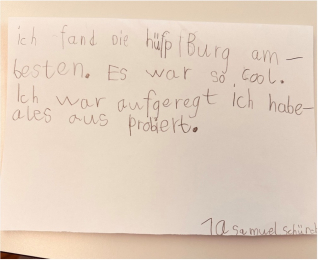 ich fand die hüpfBurg am-
besten. Es war so cool.
Ich war aufgeregt ich habe-
ales aus probiert.
1a Samuel Schürch